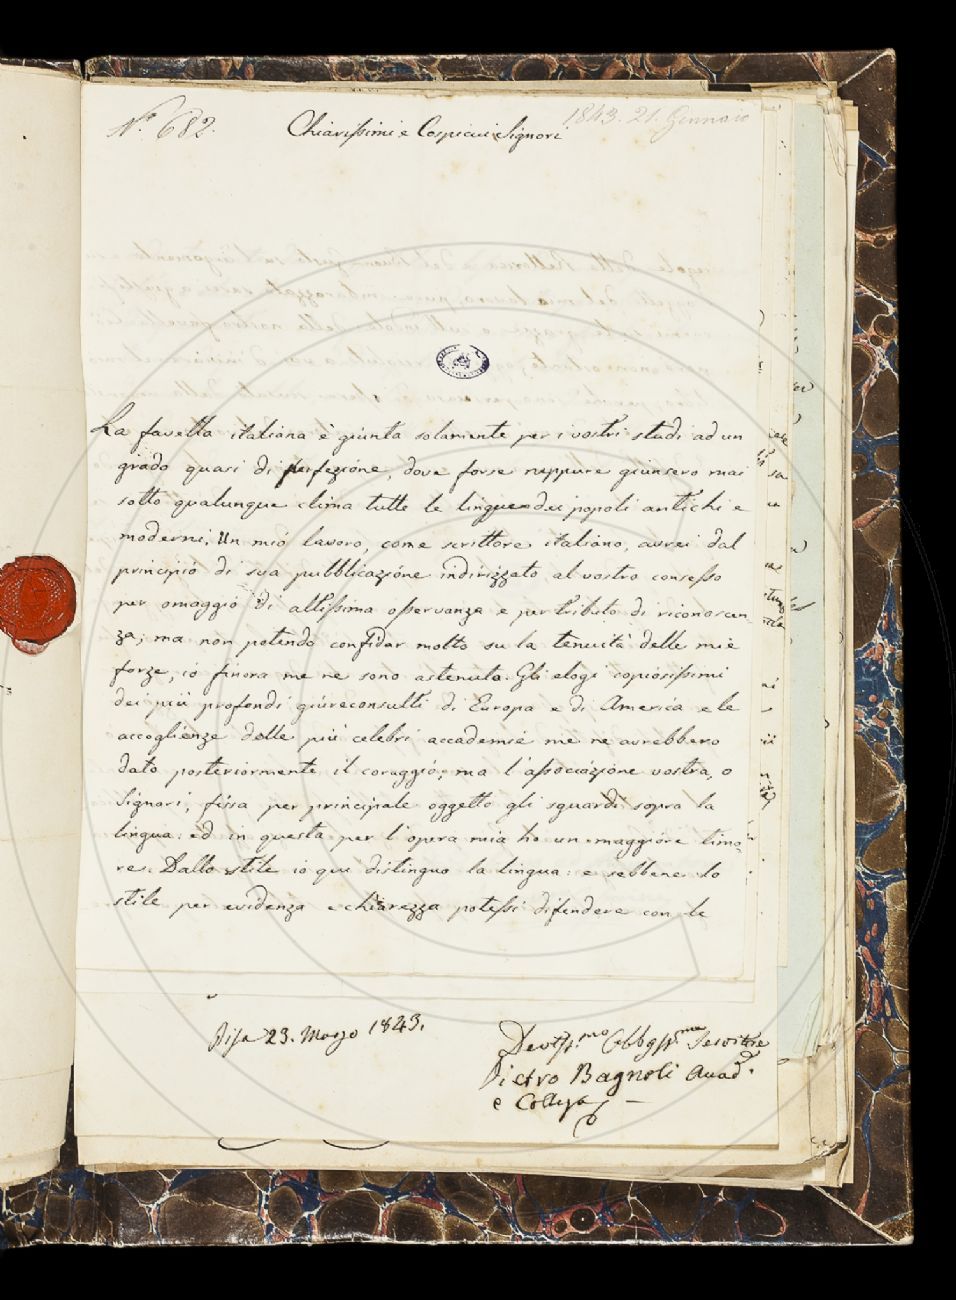 N.° 682.
1843. 21. Gennaio
Chiarissimi e Cospicui Signori
La favella italiana è giunta solamente per i vostri studi ad un
grado quasi di perfezione, dove forse neppure giunsero mai
sotto qualunque clima tutte le lingue dei popoli antichi e
moderni. Un mio lavoro, come scrittore italiano, avrei dal
principio di sua pubblicazione indirizzato al vostro consesso
per omaggio di altissima osservanza e per tributo di riconoscen-
za; ma non potendo confidar molto su la tenuità delle mie
forze, io finora me ne sono astenuta. Gli elogi copiosissimi
dei più profondi giureconsulti di Europa e di America e le
accoglienze delle più celebri accademie me ne avrebbero
dato posteriormente il coraggio; ma l'associazione vostra, o
Signori, fissa per principale oggetto gli sguardi sopra la
lingua: ed in questa per l'opera mia ho un maggiore timo-
re. Dallo stile io qui distinguo la lingua: e sebbene lo
stile per evidenza e chiarezza potessi difendere con le
Pisa 23. Marzo 1843.
Devotiss.mo Obbgss.mo Servitore
Pietro Bagnoli Accad.
e Collega